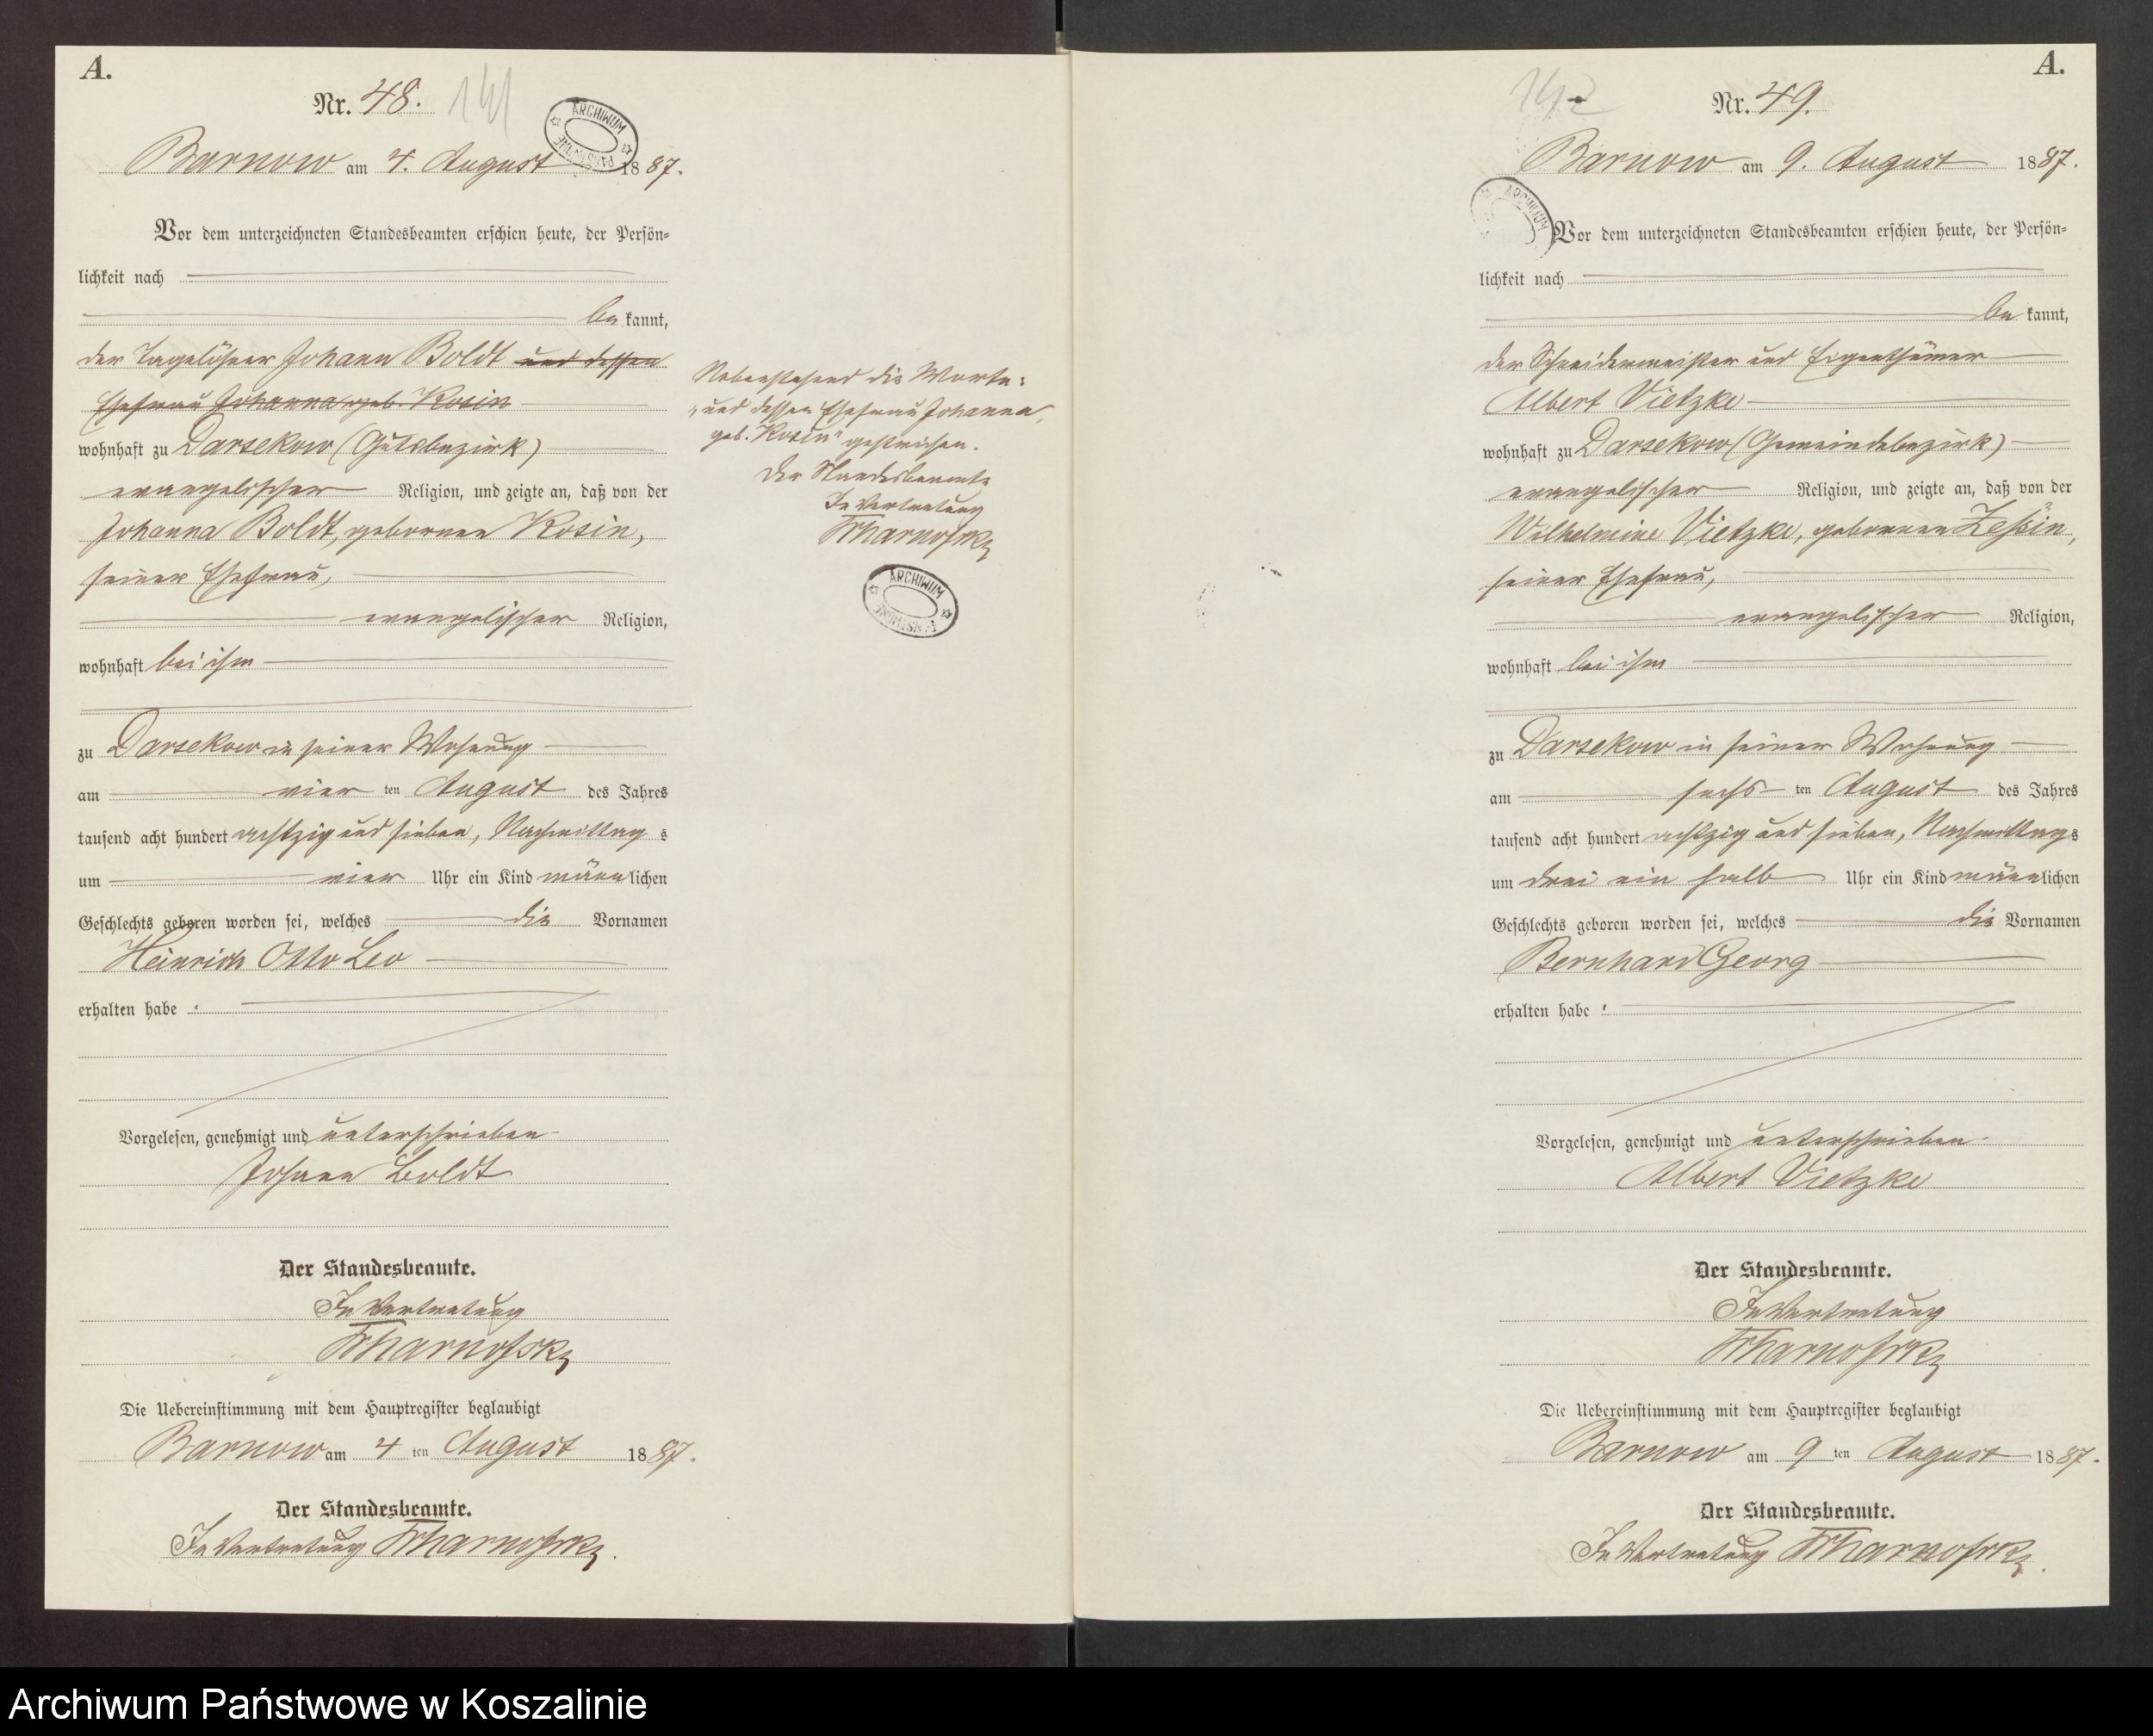 A.
Nr. 48.
141
ARCHIWUM PAŃSTWOWE
Barnow am 4. August 1887.
Vor dem unterzeichneten Standesbeamten erschien heute, der Persön-
lichkeit nach
be kannt,
der Tagelöhner Johann Boldt und dessen
Ehefrau Johanna geb. Kosin
wohnhaft zu Darsekow (Gutsbezirk)
evangelischer Religion, und zeigte an, daß von der
Johanna Boldt, geborenen Kosin,
seiner Ehefrau,
evangelischer Religion,
wohnhaft bei ihm
zu Darsekow in seiner Wohnung
am vier ten August des Jahres
tausend acht hundert achtzig und sieben, Nachmittag s
um vier Uhr ein Kind männlichen
Geschlechts geboren worden sei, welches die Vornamen
Heinrich Otto Leo
erhalten habe.
Vorgelesen, genehmigt und unterschrieben
Johann Boldt
Der Standesbeamte.
In Vertretung
Die Uebereinstimmung mit dem Hauptregister beglaubigt
Barnow am 4 ten August 1887.
Der Standesbeamte.
In Vertretung
Nebenstehend die Worte:
"und dessen Ehefrau Johanna,
geb. Kosin" gestrichen.
Der Standesbeamte
In Vertretung
ARCHIWUM PAŃSTWOWE
A.
142
Nr. 49.
Barnow am 9. August 1887.
ARCHIWUM
Vor dem unterzeichneten Standesbeamten erschien heute, der Persön-
lichkeit nach
be kannt,
der Schneidermeister und Eigenthümer
Albert Vietzke
wohnhaft zu Darsekow (Gemeindebezirk)
evangelischer Religion, und zeigte an, daß von der
Wilhelmine Vietzke, geborenen Zeßin,
seiner Ehefrau,
evangelischer Religion,
wohnhaft bei ihm
zu Darsekow in seiner Wohnung
am sechs ten August des Jahres
tausend acht hundert achtzig und sieben, Nachmittags
um drei ein halb Uhr ein Kind männlichen
Geschlechts geboren worden sei, welches die Vornamen
Bernhard Georg
erhalten habe.
Vorgelesen, genehmigt und unterschrieben.
Albert Vietzke
Der Standesbeamte.
In Vertretung
Die Uebereinstimmung mit dem Hauptregister beglaubigt
Barnow am 9 ten August 1887.
Der Standesbeamte.
In Vertretung
Archiwum Państwowe w Koszalinie